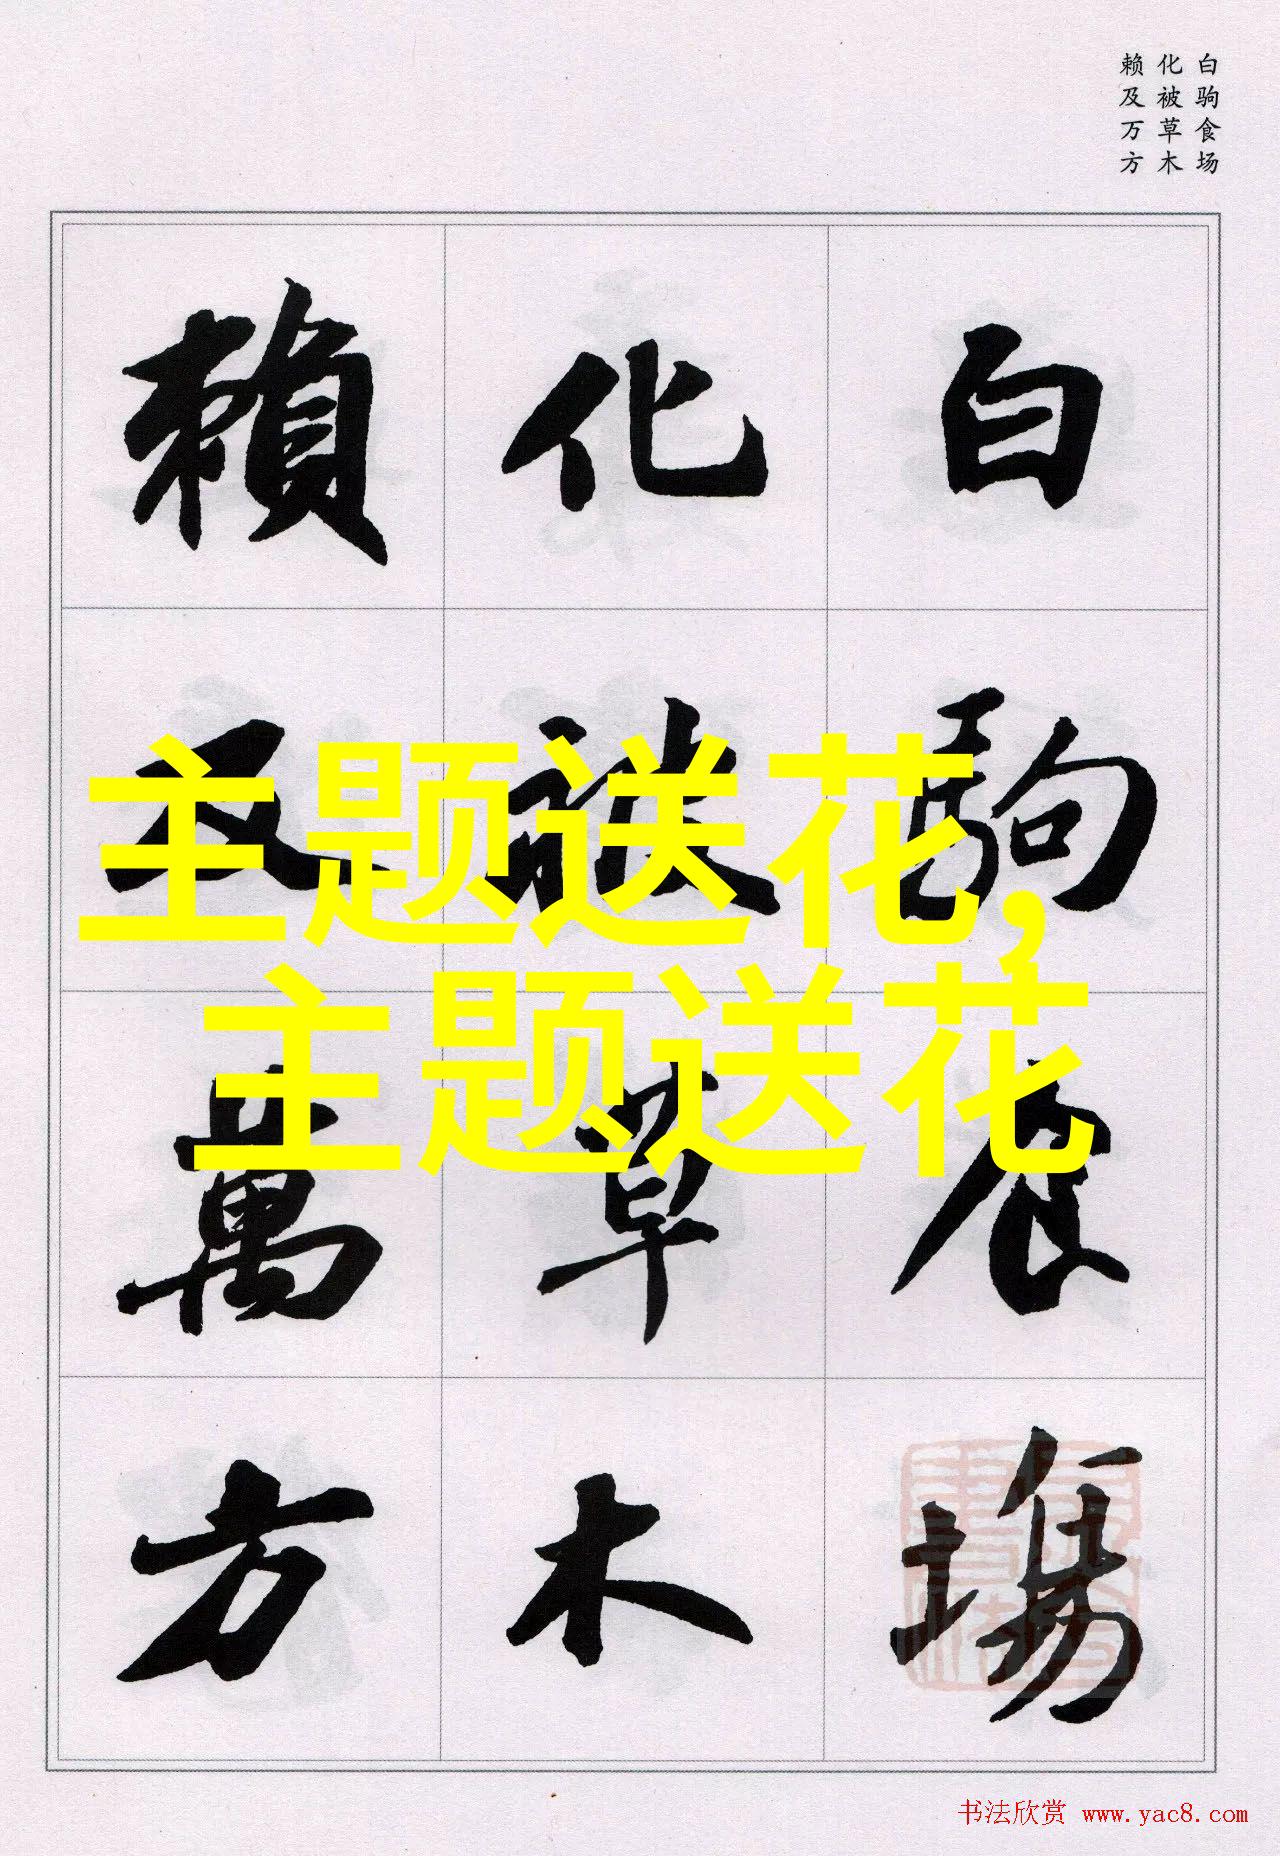 白驹食场
化被草木
赖及万方
白駒食場
化被草木
賴及萬方
主题送花,
主题送花
书法欣赏 www.yac8.com